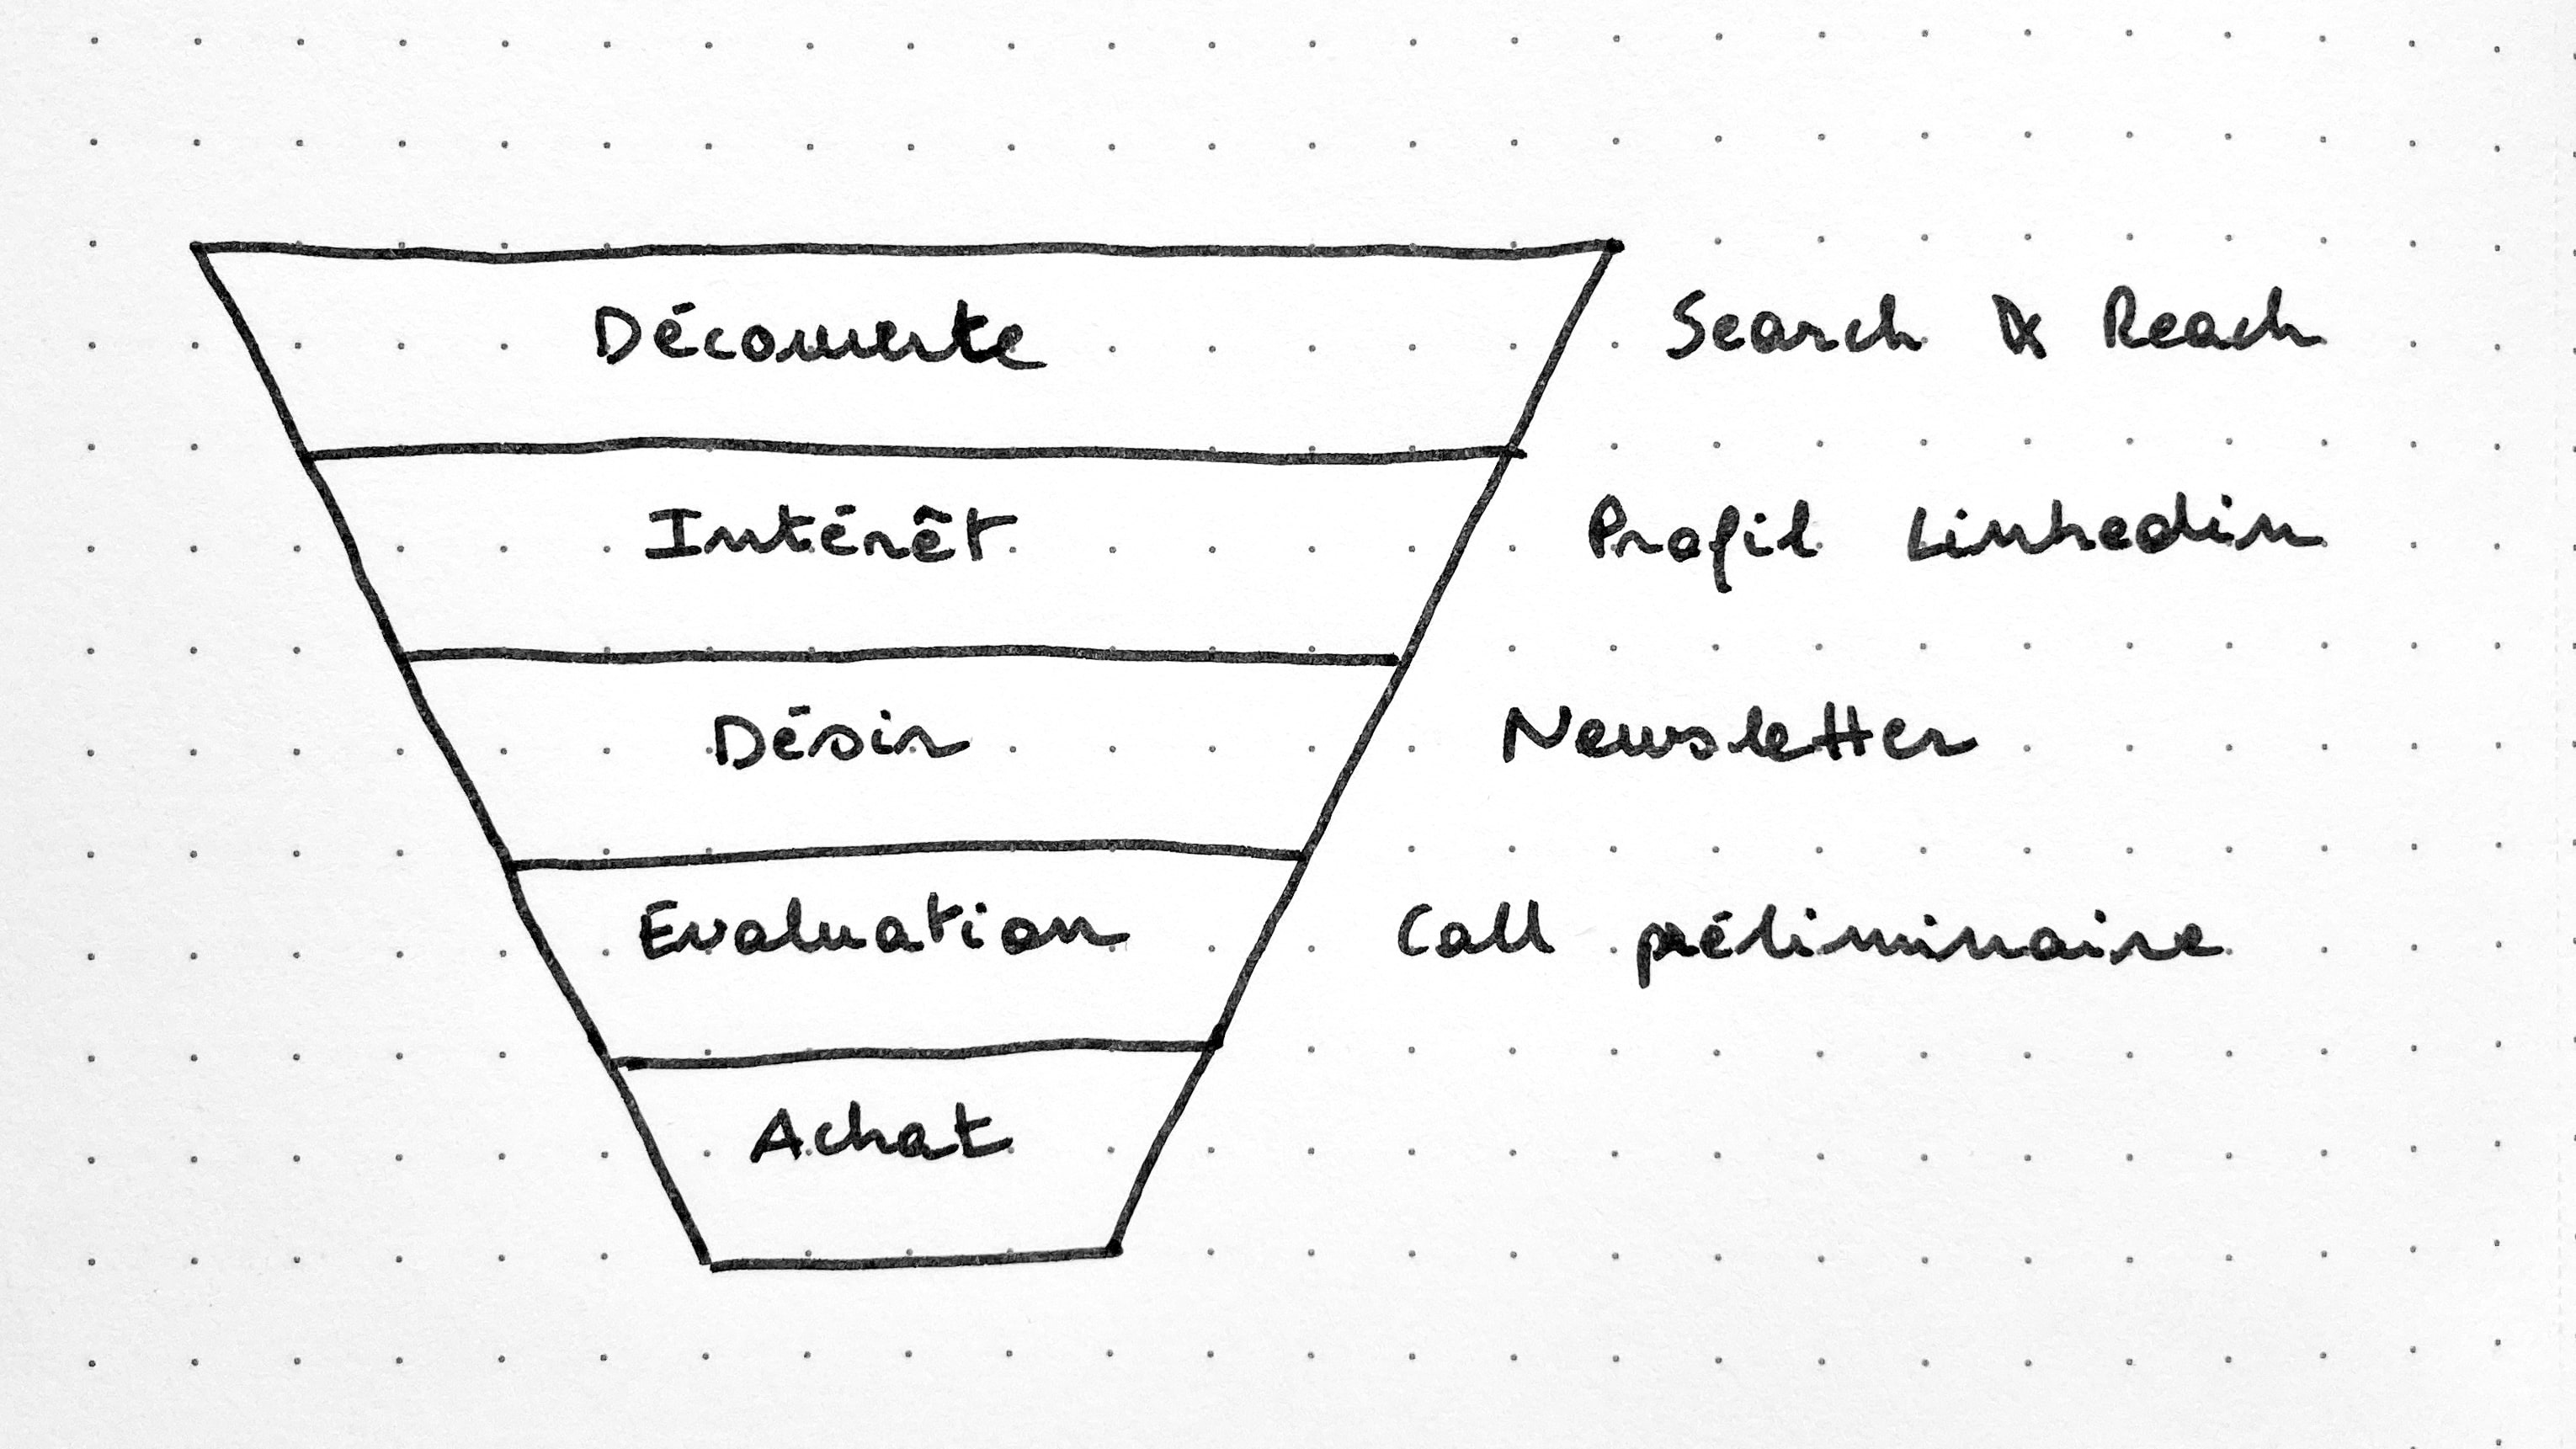 Découverte Search & Reach
Intérêt Profil Linkedin
Désir Newsletter
Evaluation Call préliminaire
Achat